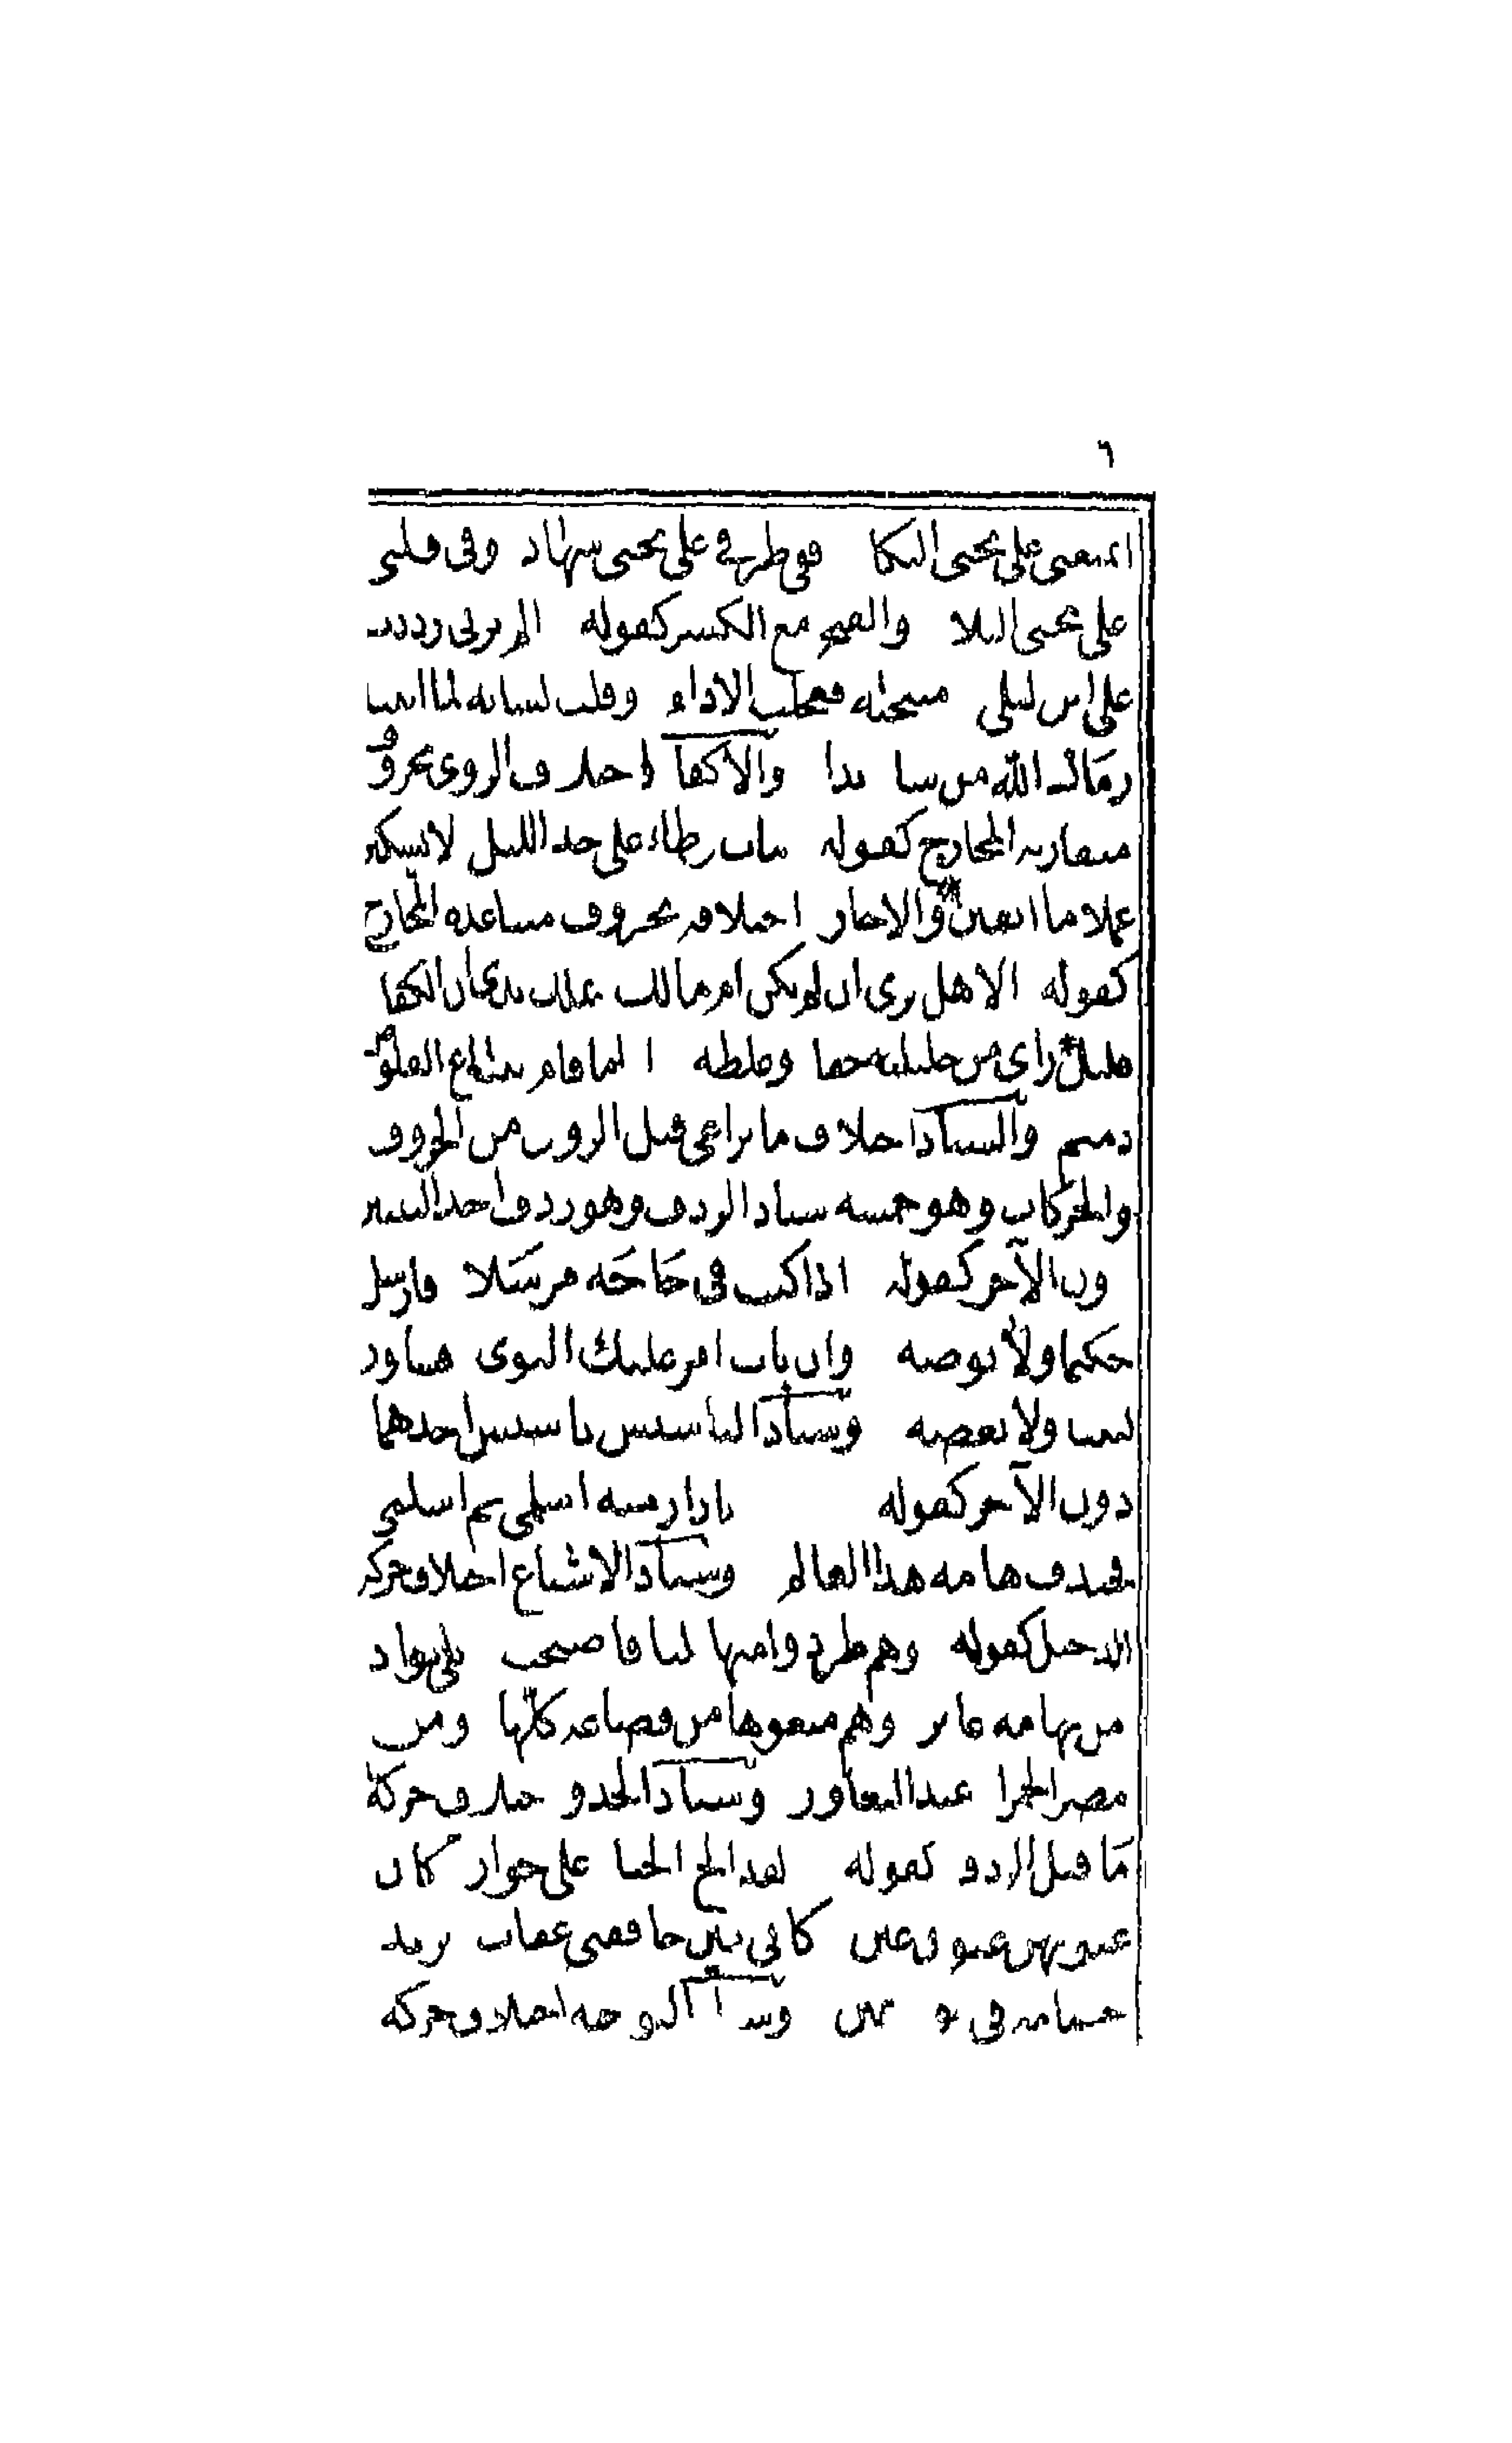 ٦
اتمنعنى على يحيى البكا ففى طرفى على يحيى سهاد وفى قلبى
على يحيى البلا والفتح مع الكسر كقوله الم ترنى رددت
على ابن ليلى منيحته فعجلت الاداء وقلت لشاته لما اتتنا
رماك الله من شاة بداء والاكفا اختلاف الروى بحروف
متقاربة المخارج كقوله بنات وطاء على خد الليل لا يشتكين
عملا ما انقين والاجازة اختلافه بحروف متباعدة المخارج
كقوله الا هل ترى ان لم تكن ام مالك بملك يدى ان الكفا
قليل راى من خليليه جفا وغلظة اذا قام يبتاع القلوص
ذميم والسناد اختلاف ما يراعى قبل الروى من الحروف
والحركات وهو خمسة سناد الردف وهو ردف احد البيتين
دون الآخر كقوله اذا كنت فى حاجة مرسلا فارسل
حكيما ولا توصه وان باب امر عليك التوى فشاور
لبيبا ولا تعصه وسناد التاسيس تاسيس احدهما
دون الآخر كقوله يا دار مية اسلمى ثم اسلمى
فخندف هامة هذا العالم وسناد الاشباع اختلاف حركة
الدخيل كقوله وهم طردوا منها بليا فاصبحت بلى بواد
من تهامة غائر وهم منعوها من قضاعة كلها ومن
مضر الحمرا عند التغاور وسناد الحذو اختلاف حركة
ما قبل الردف كقوله لقد الج الخبا على جوار كان
عيونهن عيون عين كانى بين خافيتى عقاب تريد
حمامة فى يوم غين وسناد التوجيه اختلاف حركة